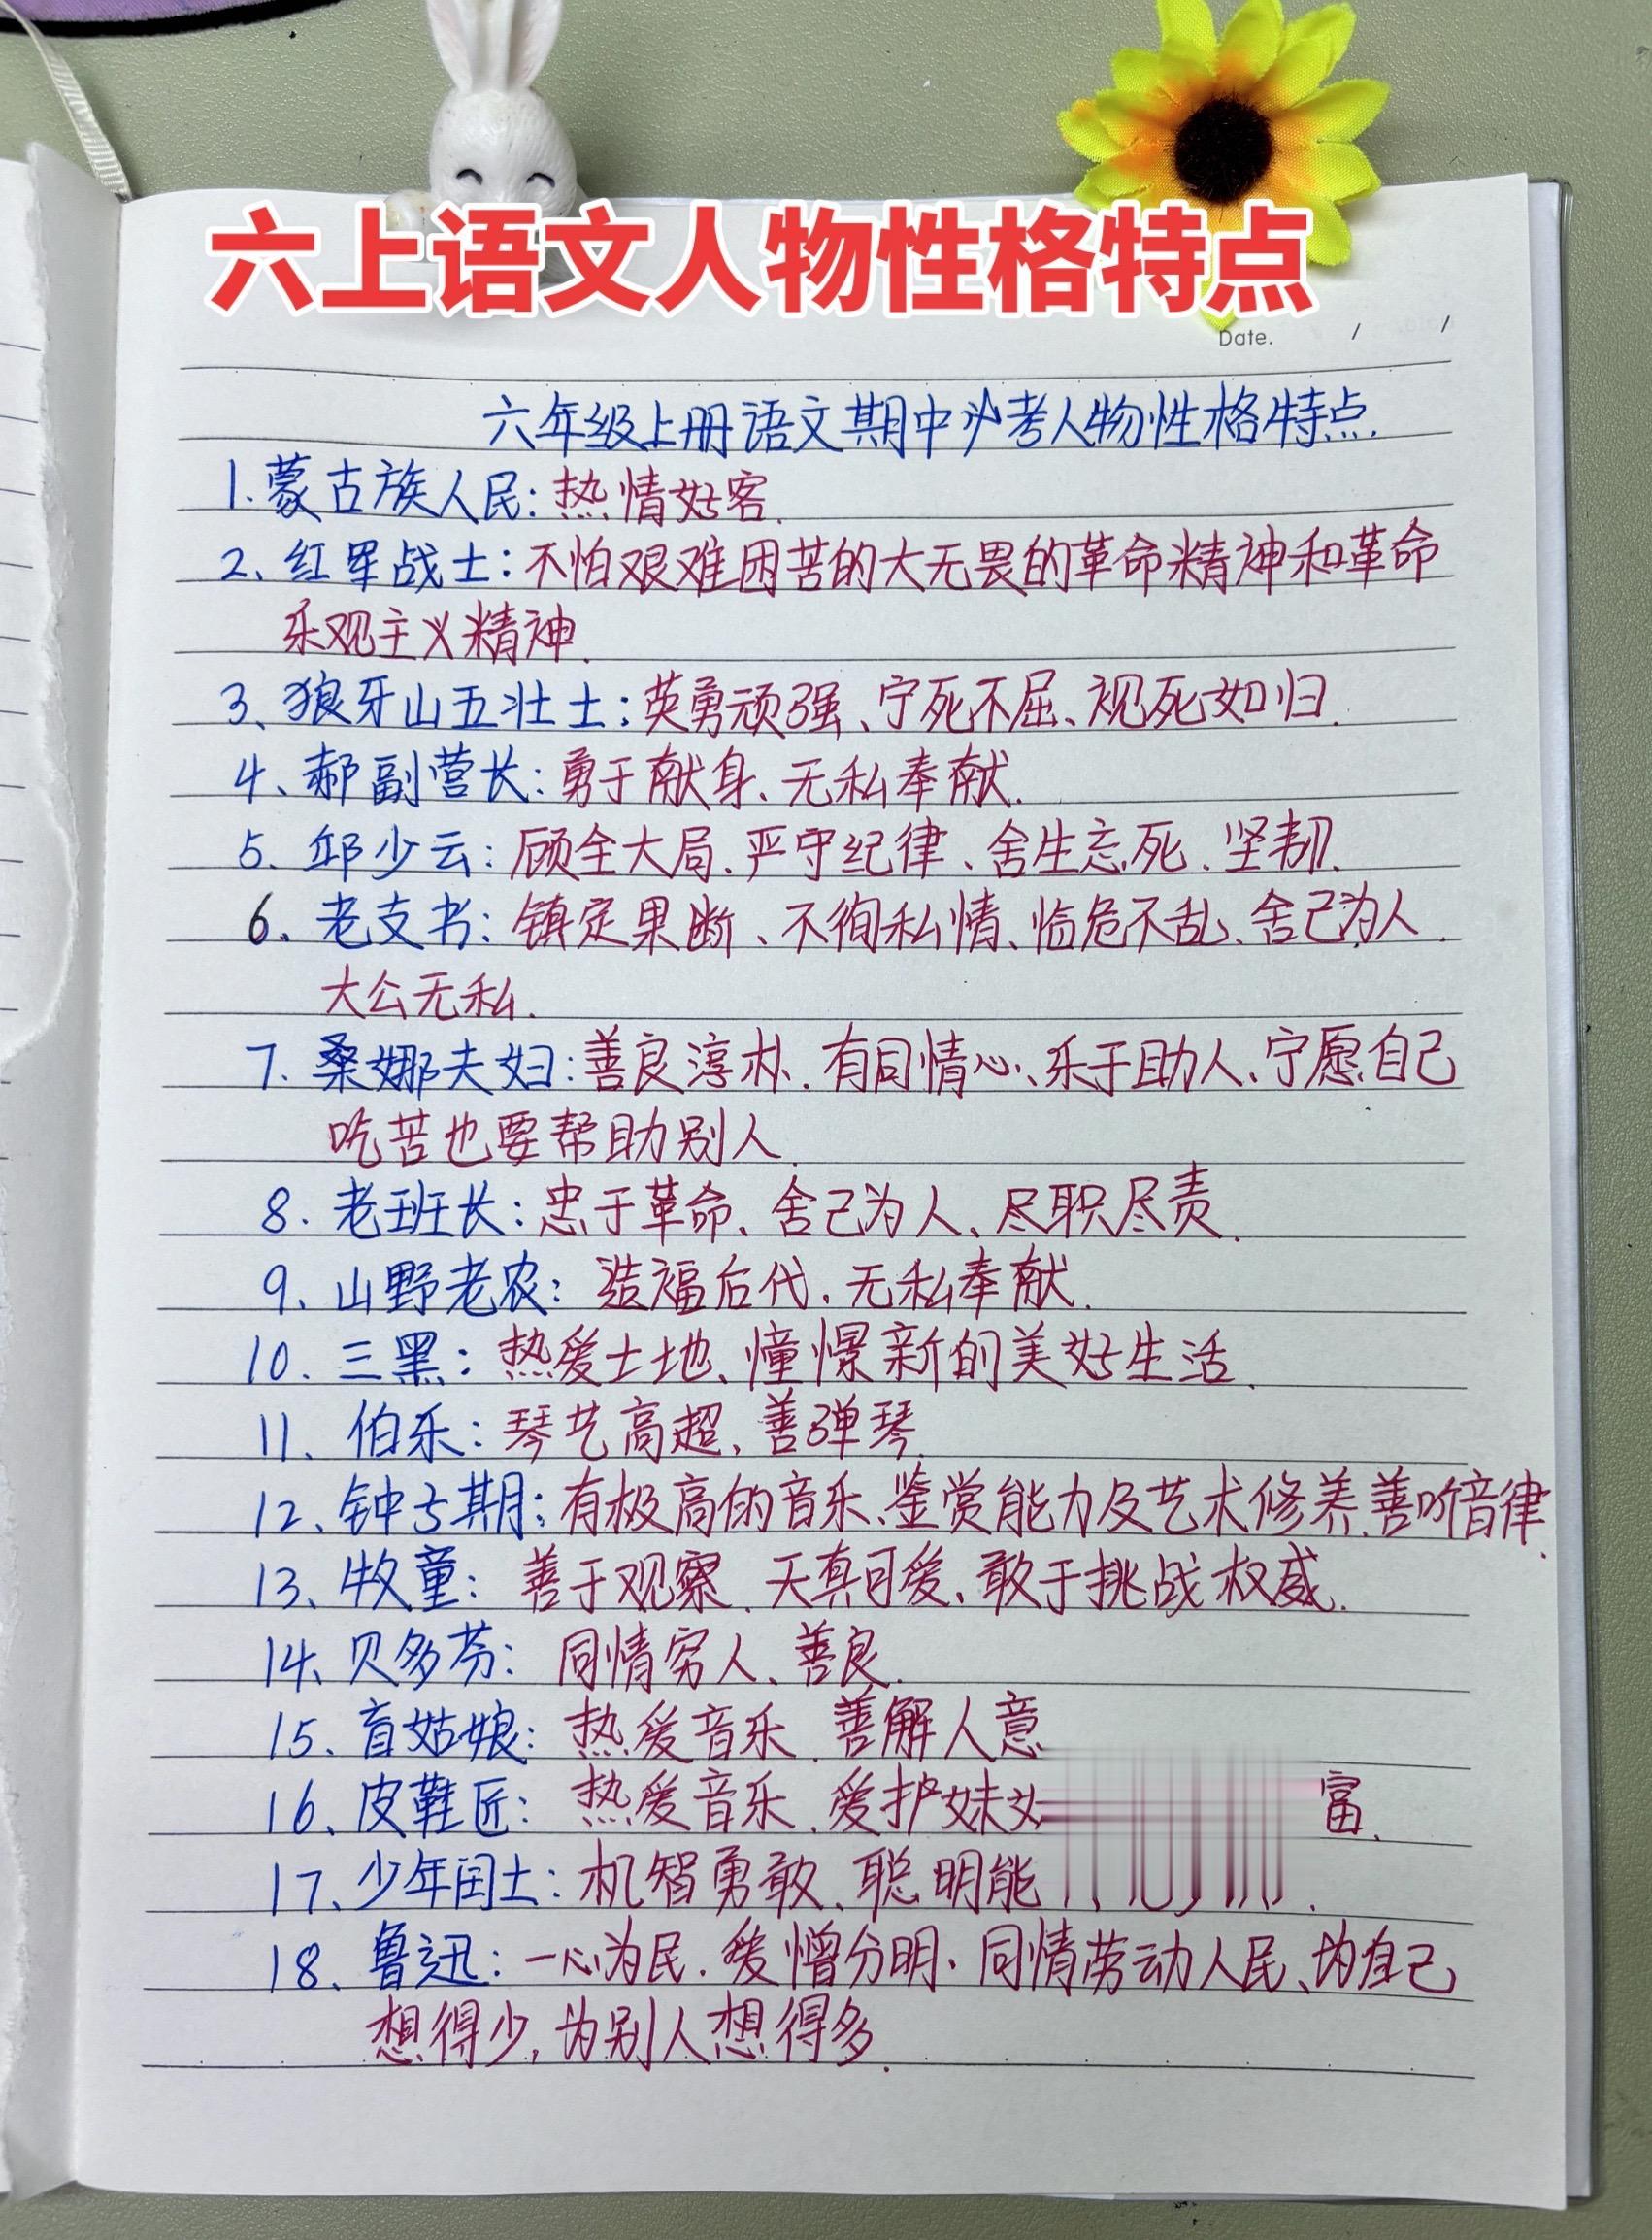 六上语文人物性格特点
Date. / /
六年级上册语文期中必考人物性格特点.
1.蒙古族人民:热情好客.
2、红军战士:不怕艰难困苦的大无畏的革命精神和革命
乐观主义精神.
3、狼牙山五壮士:英勇顽强、宁死不屈、视死如归.
4、郝副营长:勇于献身、无私奉献.
5. 邱少云:顾全大局、严守纪律、舍生忘死、坚韧.
6、老支书:镇定果断、不徇私情、临危不乱、舍己为人.
大公无私.
7. 桑娜夫妇:善良淳朴.有同情心、乐于助人、宁愿自己
吃苦也要帮助别人.
8. 老班长:忠于革命、舍己为人、尽职尽责.
9、山野老农:造福后代、无私奉献.
10、三黑:热爱土地、憧憬新的美好生活.
11、伯乐:琴艺高超、善弹琴.
12、钟子期:有极高的音乐、鉴赏能力及艺术修养.善听音律.
13、牧童:善于观察、天真可爱、敢于挑战权威.
14、贝多芬:同情穷人、善良.
15、盲姑娘:热爱音乐、善解人意
16、皮鞋匠:热爱音乐、爱护妹 富.
17、少年闰土:机智勇敢、聪明能
18、鲁迅:一心为民.爱憎分明、同情劳动人民、为自己
想得少,为别人想得多.